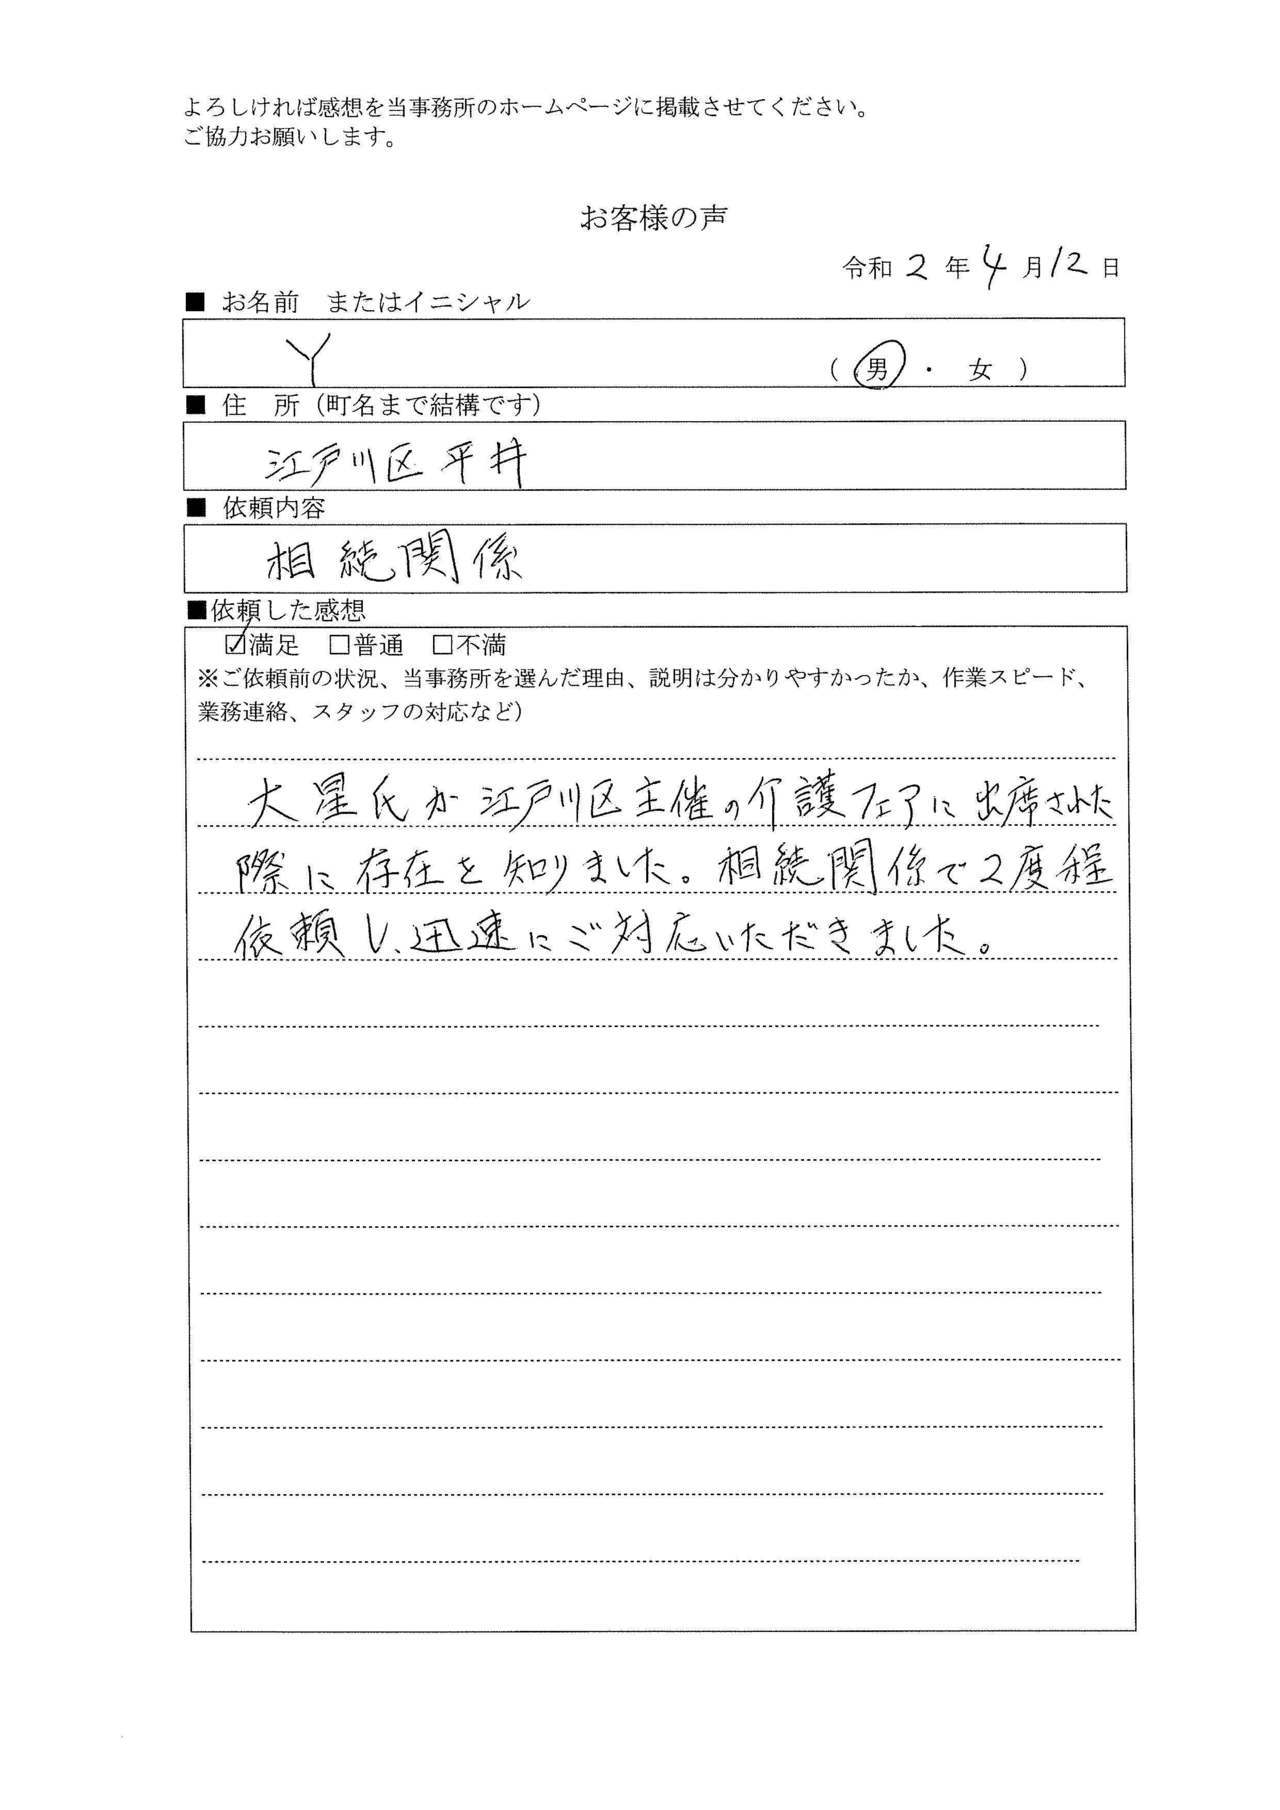 よろしければ感想を当事務所のホームページに掲載させてください。
ご協力お願いします。
お客様の声
令和 2 年 4 月 12 日
■ お名前　またはイニシャル
Y （ 男 ・ 女 ）
■ 住　所（町名まで結構です）
江戸川区平井
■ 依頼内容
相続関係
■依頼した感想
☑満足　□普通　□不満
※ご依頼前の状況、当事務所を選んだ理由、説明は分かりやすかったか、作業スピード、
業務連絡、スタッフの対応など）
大星氏が江戸川区主催の介護フェアに出席された
際に存在を知りました。相続関係で2度程
依頼し、迅速にご対応いただきました。